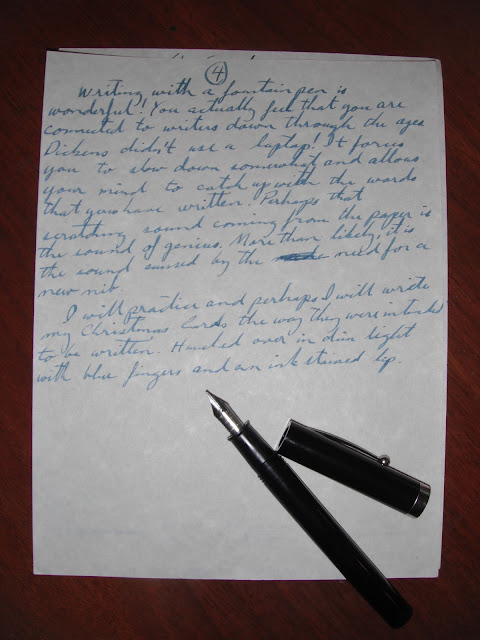 4
Writing with a fountain pen is
wonderful! You actually feel that you are
connected to writers down through the ages
Dickens didn't use a laptop! It forces
you to slow down somewhat and allows
your mind to catch up with the words
that you have written. Perhaps that
scratching sound coming from the paper is
the sound of genius. More than likely, it is
the sound caused by the need for a
new nib.
I will practice and perhaps I will write
my Christmas Cards the way they were intended
to be written. Hunched over in dim light
with blue fingers and an ink stained lip.